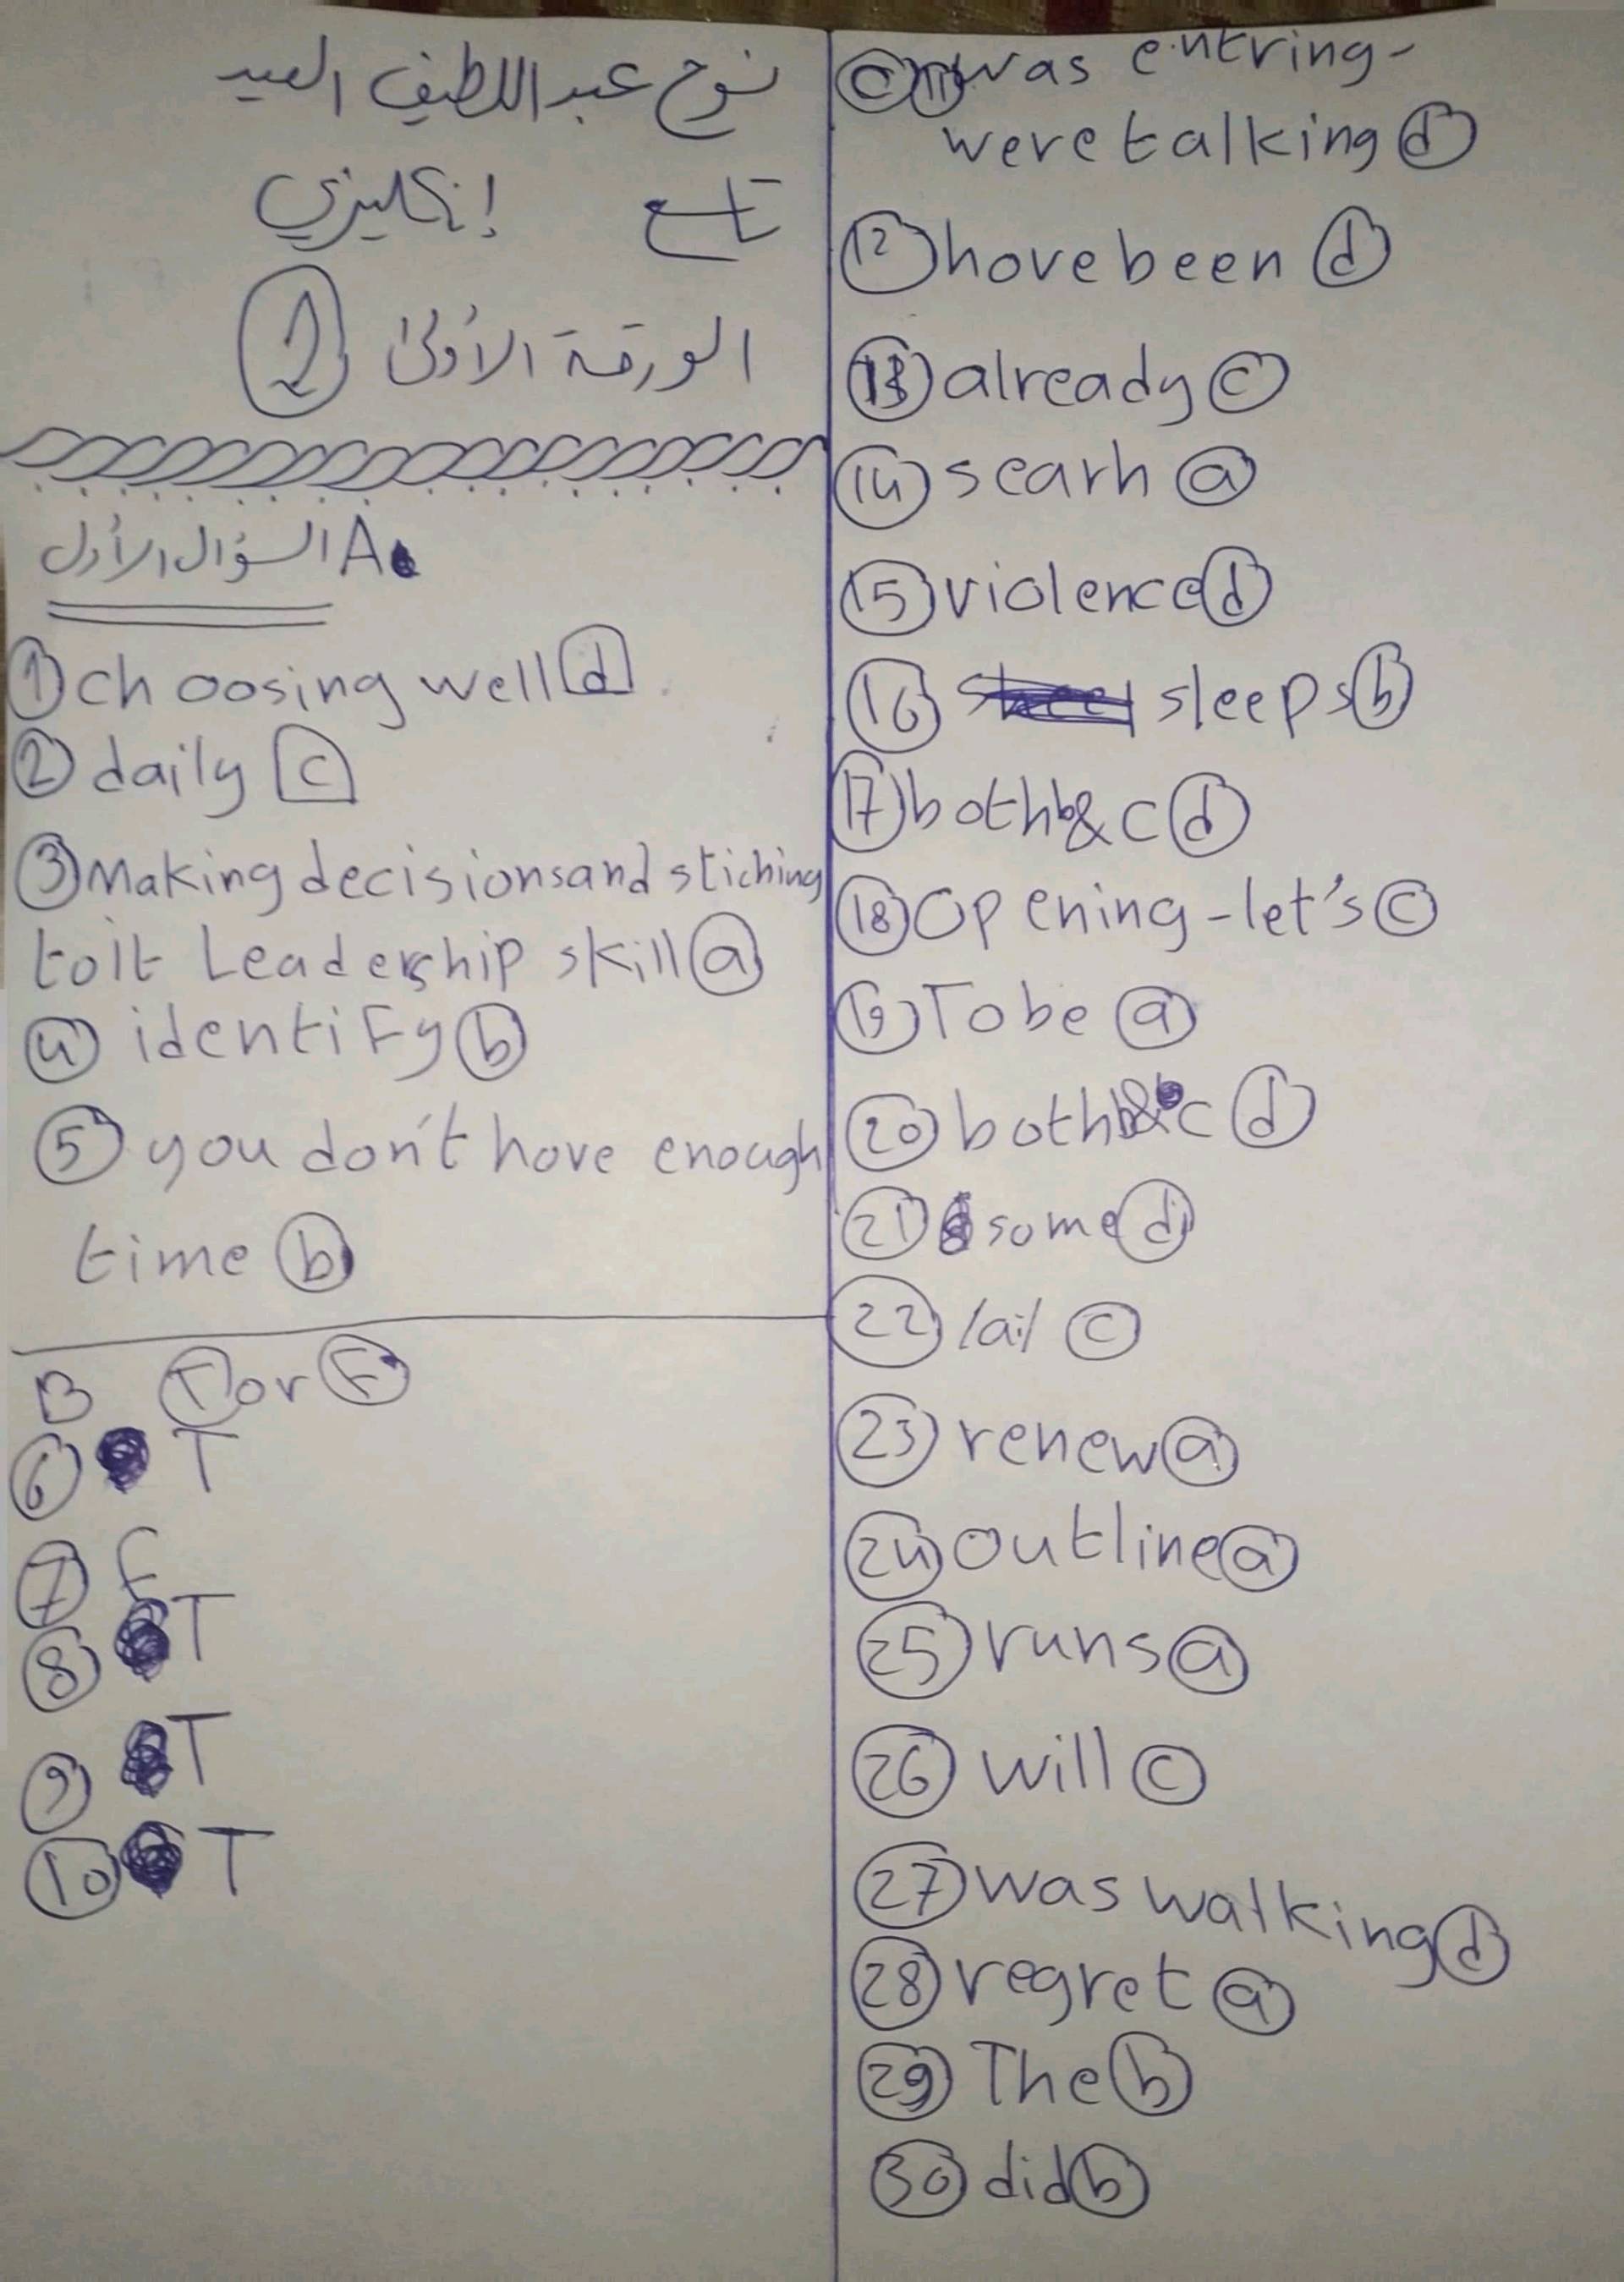 نوح عبد اللطيف العيد
تاسع إنكليزي
الورقة الأولى 1
السؤال الأول A
1 choosing well d
2 daily c
3 Making decisions and stiching
to it Leadership skill a
4 identify b
5 you don't have enough
time b
B T or F
6 T
7 F
8 T
9 T
10 T
C 11 was entring-
were talking d
12 have been d
13 already c
14 searh a
15 violence d
16 sleeps b
17 both b & c d
18 Opening - let's c
19 To be a
20 both b & c d
21 some d
22 lail c
23 renew a
24 outline a
25 runs a
26 will c
27 was walking d
28 regret a
29 The b
30 did b